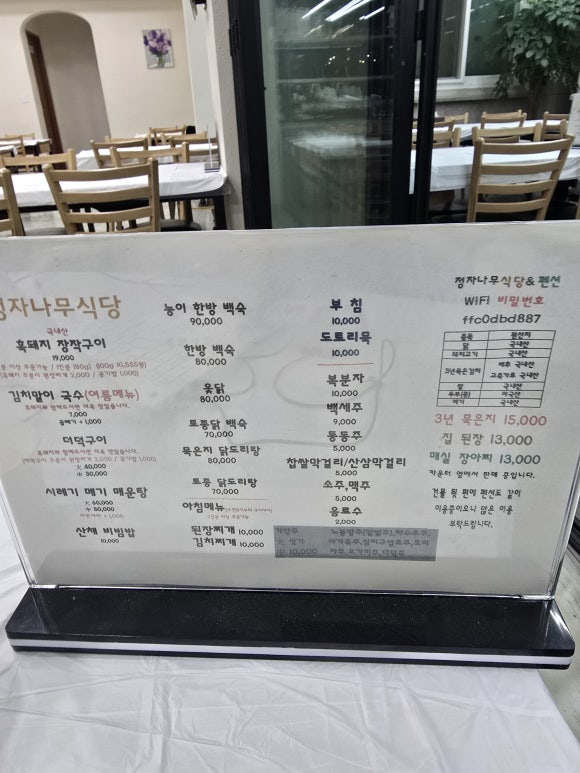 정자나무식당
국내산
흑돼지 장작구이
19,000
김치말이 국수(여름메뉴)
흑돼지와 함께드시면 더욱 맛있습니다.
7,000
곱빼기 +1,000
더덕구이
흑돼지와 함께드시면 더욱 맛있습니다.
大 40,000
中 30,000
시레기 메기 매운탕
大 60,000
中 50,000
산채 비빔밥
10,000
능이 한방 백숙
90,000
한방 백숙
80,000
옻닭
80,000
토종닭 백숙
70,000
묵은지 닭도리탕
80,000
토종 닭도리탕
70,000
아침메뉴
된장찌개 10,000
김치찌개 10,000
부 침
10,000
도토리묵
10,000
복분자
10,000
백세주
9,000
동동주
5,000
찹쌀막걸리/산삼막걸리
5,000
소주,맥주
5,000
음료수
2,000
정자나무식당&펜션
WiFi 비밀번호
ffc0dbd887
품목 원산지
닭 국내산
돼지고기 국내산
3년묵은김치 배추 국내산
고춧가루 국내산
쌀 국내산
두부(콩) 외국산
메기 국내산
3년 묵은지 15,000
집 된장 13,000
매실 장아찌 13,000
카운터 옆에서 판매 중입니다.
건물 뒷 편에 펜션도 같이
이용중이오니 많은 이용
부탁드립니다.